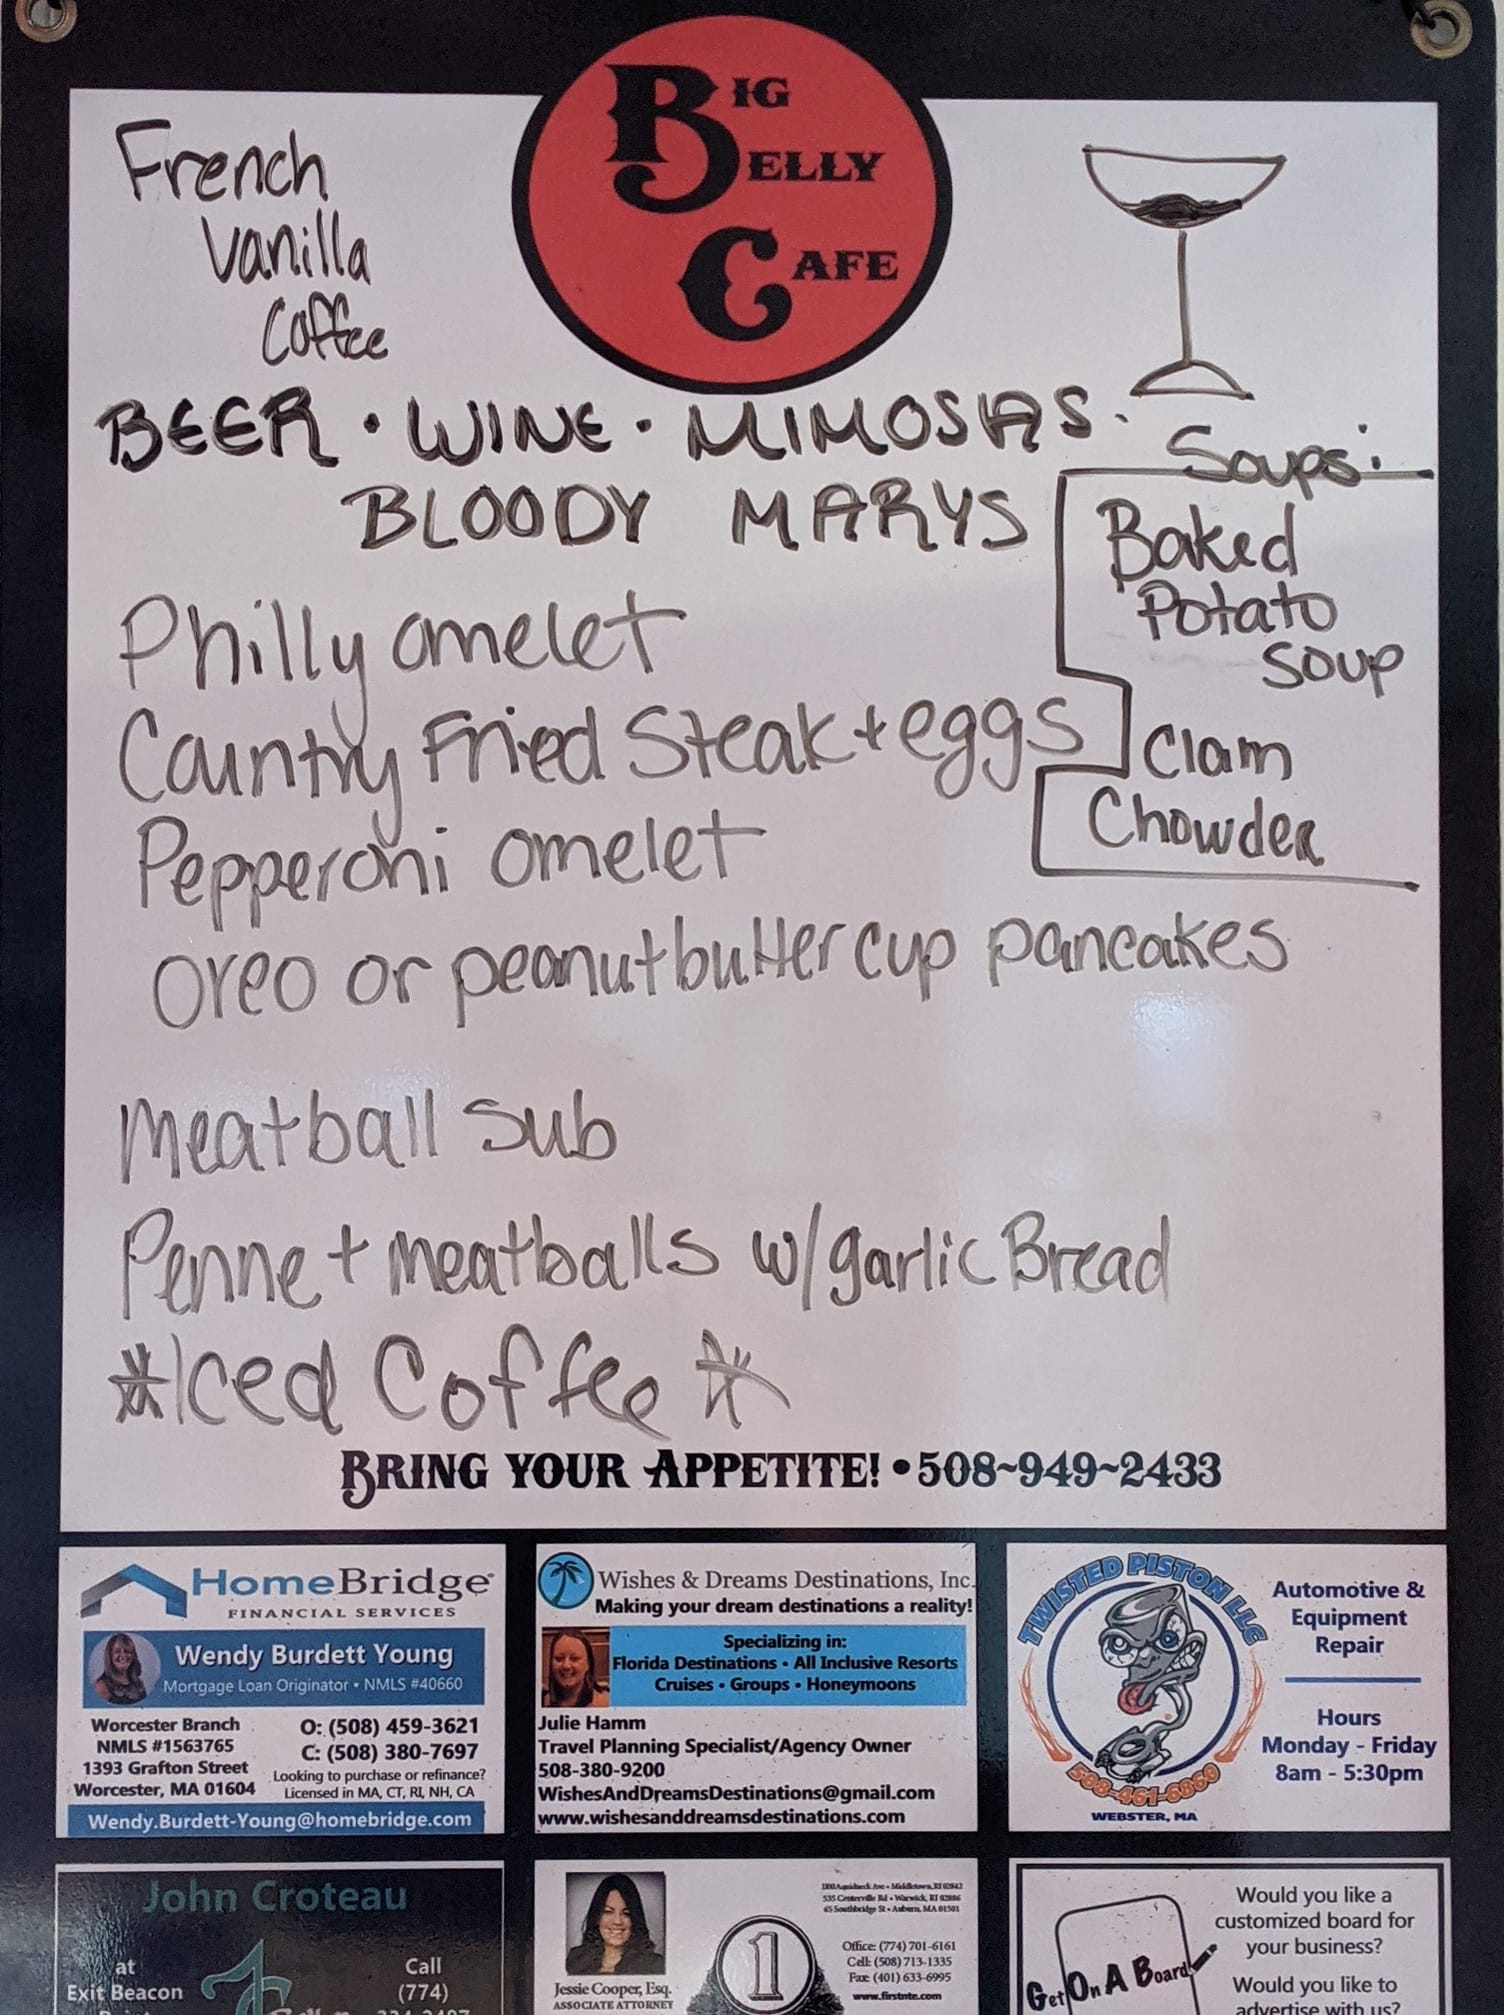 BIG
BELLY
CAFE
French
Vanilla
Coffee
BEER · WINE · MIMOSAS ·
BLOODY MARYS
Soups:
Baked
Potato
Soup
Clam
Chowder
Philly omelet
Country Fried Steak + eggs
Pepperoni omelet
oreo or peanutbutter cup pancakes
Meatball Sub
Penne + meatballs w/garlic Bread
*Iced Coffee*
BRING YOUR APPETITE! • 508~949~2433
HomeBridge
FINANCIAL SERVICES
Wendy Burdett Young
Mortgage Loan Originator • NMLS #40660
Worcester Branch
NMLS #1563765
1393 Grafton Street
Worcester, MA 01604
O: (508) 459-3621
C: (508) 380-7697
Looking to purchase or refinance?
Licensed in MA, CT, RI, NH, CA
Wendy.Burdett-Young@homebridge.com
Wishes & Dreams Destinations, Inc.
Making your dream destinations a reality!
Specializing in:
Florida Destinations • All Inclusive Resorts
Cruises • Groups • Honeymoons
Julie Hamm
Travel Planning Specialist/Agency Owner
508-380-9200
WishesAndDreamsDestinations@gmail.com
www.wishesanddreamsdestinations.com
TWISTED PISTON LLC
508-461-6860
WEBSTER, MA
Automotive &
Equipment
Repair
Hours
Monday - Friday
8am - 5:30pm
John Croteau
at
Exit Beacon
Call
(774)
Jessie Cooper, Esq.
ASSOCIATE ATTORNEY
1
1300 Aquidneck Ave • Middletown, RI 02842
535 Centerville Rd • Warwick, RI 02886
65 Southbridge St • Auburn, MA 01501
Office: (774) 701-6161
Cell: (508) 713-1335
Fax: (401) 633-6995
www.firstnte.com
Get On A Board!
Would you like a
customized board for
your business?
Would you like to
advertise with us?